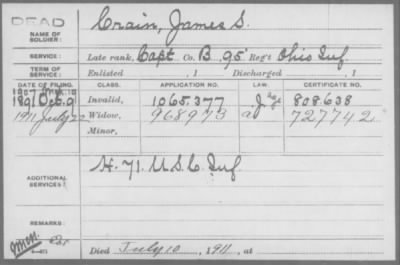 DEAD
NAME OF SOLDIER: Crain, James S.
SERVICE: Late rank, Capt. Co. B, 95 Reg't Ohio Inf.
TERM OF SERVICE: Enlisted , 1 Discharged , 1
DATE OF FILING. CLASS. APPLICATION NO. LAW. CERTIFICATE NO.
1891 Dec. 9 Invalid, 1.065.377 J 808.638
1911 July 22 Widow, 968973 a 727742
Minor,
ADDITIONAL SERVICES: H. 71. U.S.C. Inf.
REMARKS:
Died July 10, 1911, at